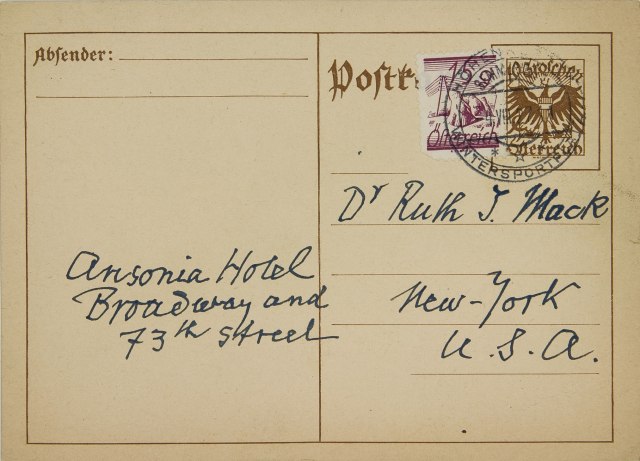 Absender:
Postk
15
10 Groschen
Österreich
Österreich
WINTERSPORTPL
Dr Ruth J. Mack
Ansonia Hotel
Broadway and
73th Street
New-York
U.S.A.